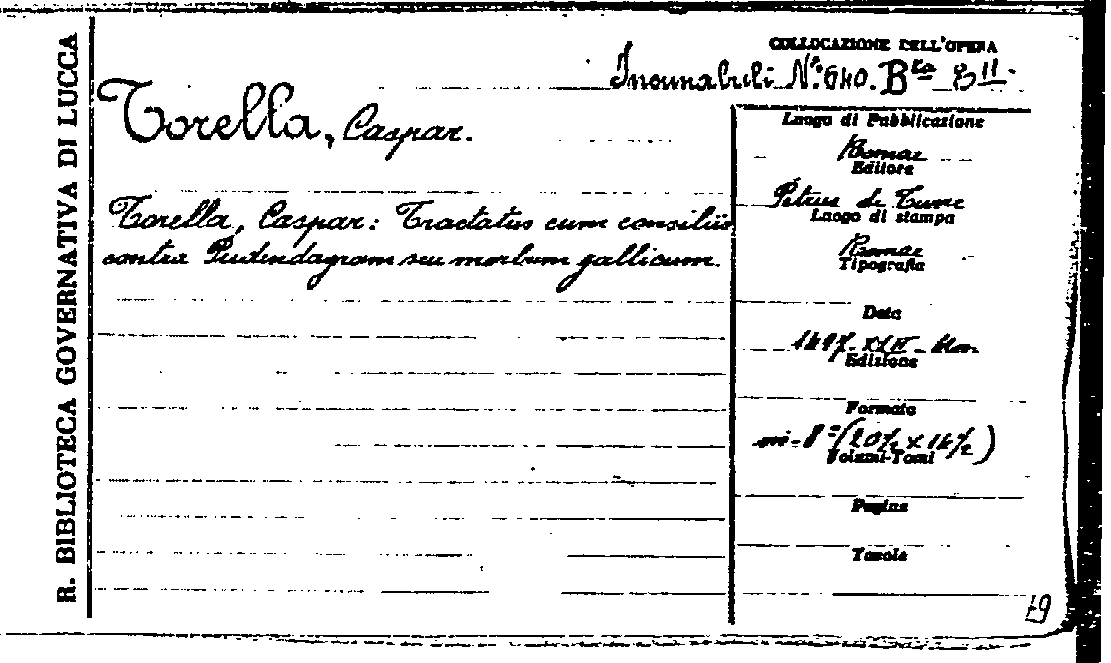 R. BIBLIOTECA GOVERNATIVA DI LUCCA
COLLOCAZIONE DELL'OPERA
Incunabuli N.° 640. Bta
Torella, Caspar.
Torella, Caspar: Tractatus cum consiliis
contra Pudendagram seu morbum gallicum.
Luogo di Pubblicazione
Romae
Editore
Petrus de Turre
Luogo di stampa
Romae
Tipografia
Data
1497
Edizione
Formato
in-8° (20½ x 14½)
Volumi-Tomi
Pagine
Tavole